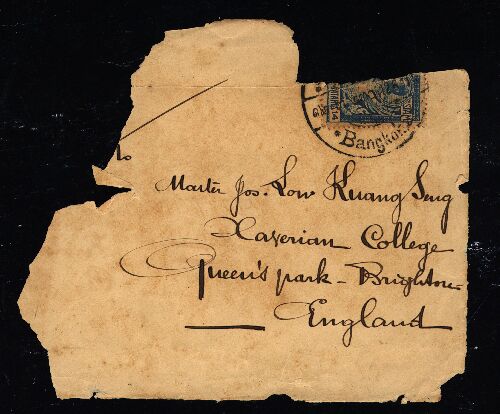 Bangkok
to
Master Jos. Low Kuang Seng
Xaverian College
Queen's park - Brighton
England